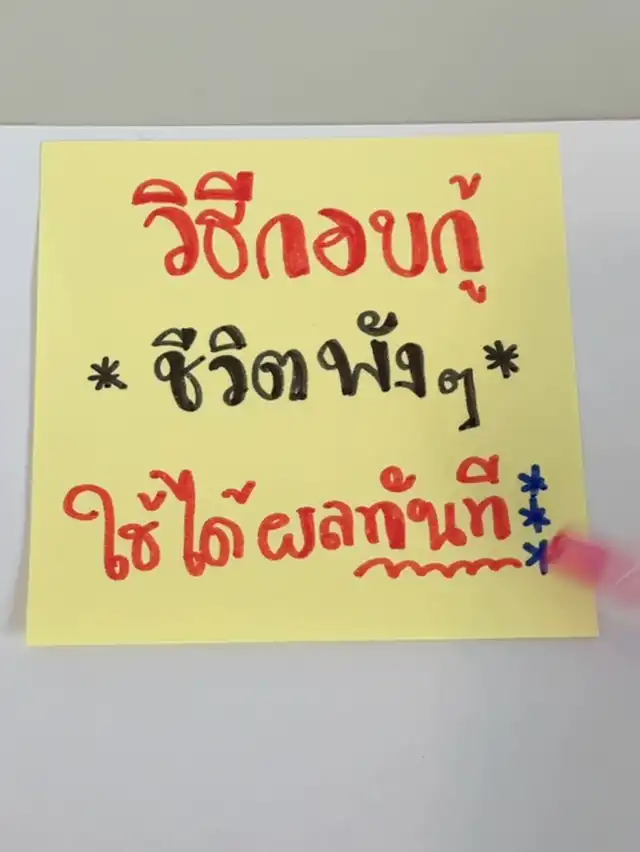 วิธีกอบกู้
* ชีวิตพังๆ *
ใช้ได้ผลทันที ***